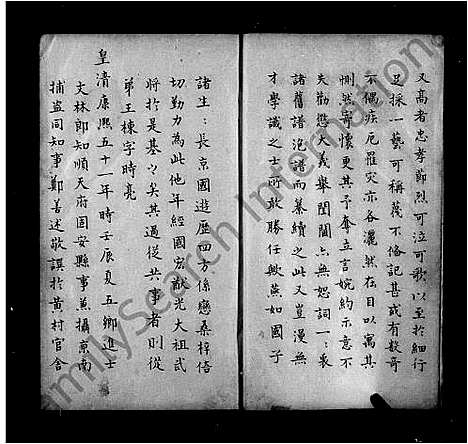 又高者忠孝節烈可泣可歌以至於細行
足採一藝可稱蔑不備記甚或有數奇
不偶疾厄罹灾亦各灑然在目以寓其
惻然寄懷更其予奪立言婉約示意不
失勸懲大義舉閨閫亦無恕詞一丧
諸舊譜氾譜而纂續之此又豈漫無
才學識之士所敢勝任歟蕪如國子
諸生長京國遊歴四方係戀桑梓倍
切勤力為此他年經國宏猷光大祖武
將於是基之矣其過從共事者則從
弟王棟字時亮
皇清康熙五十一年時壬辰夏五鄉進士
文林郎知順天府固安縣事兼攝京南
捕盗同知事鄭善述敬譔於黄村官舍
FamilySearch International